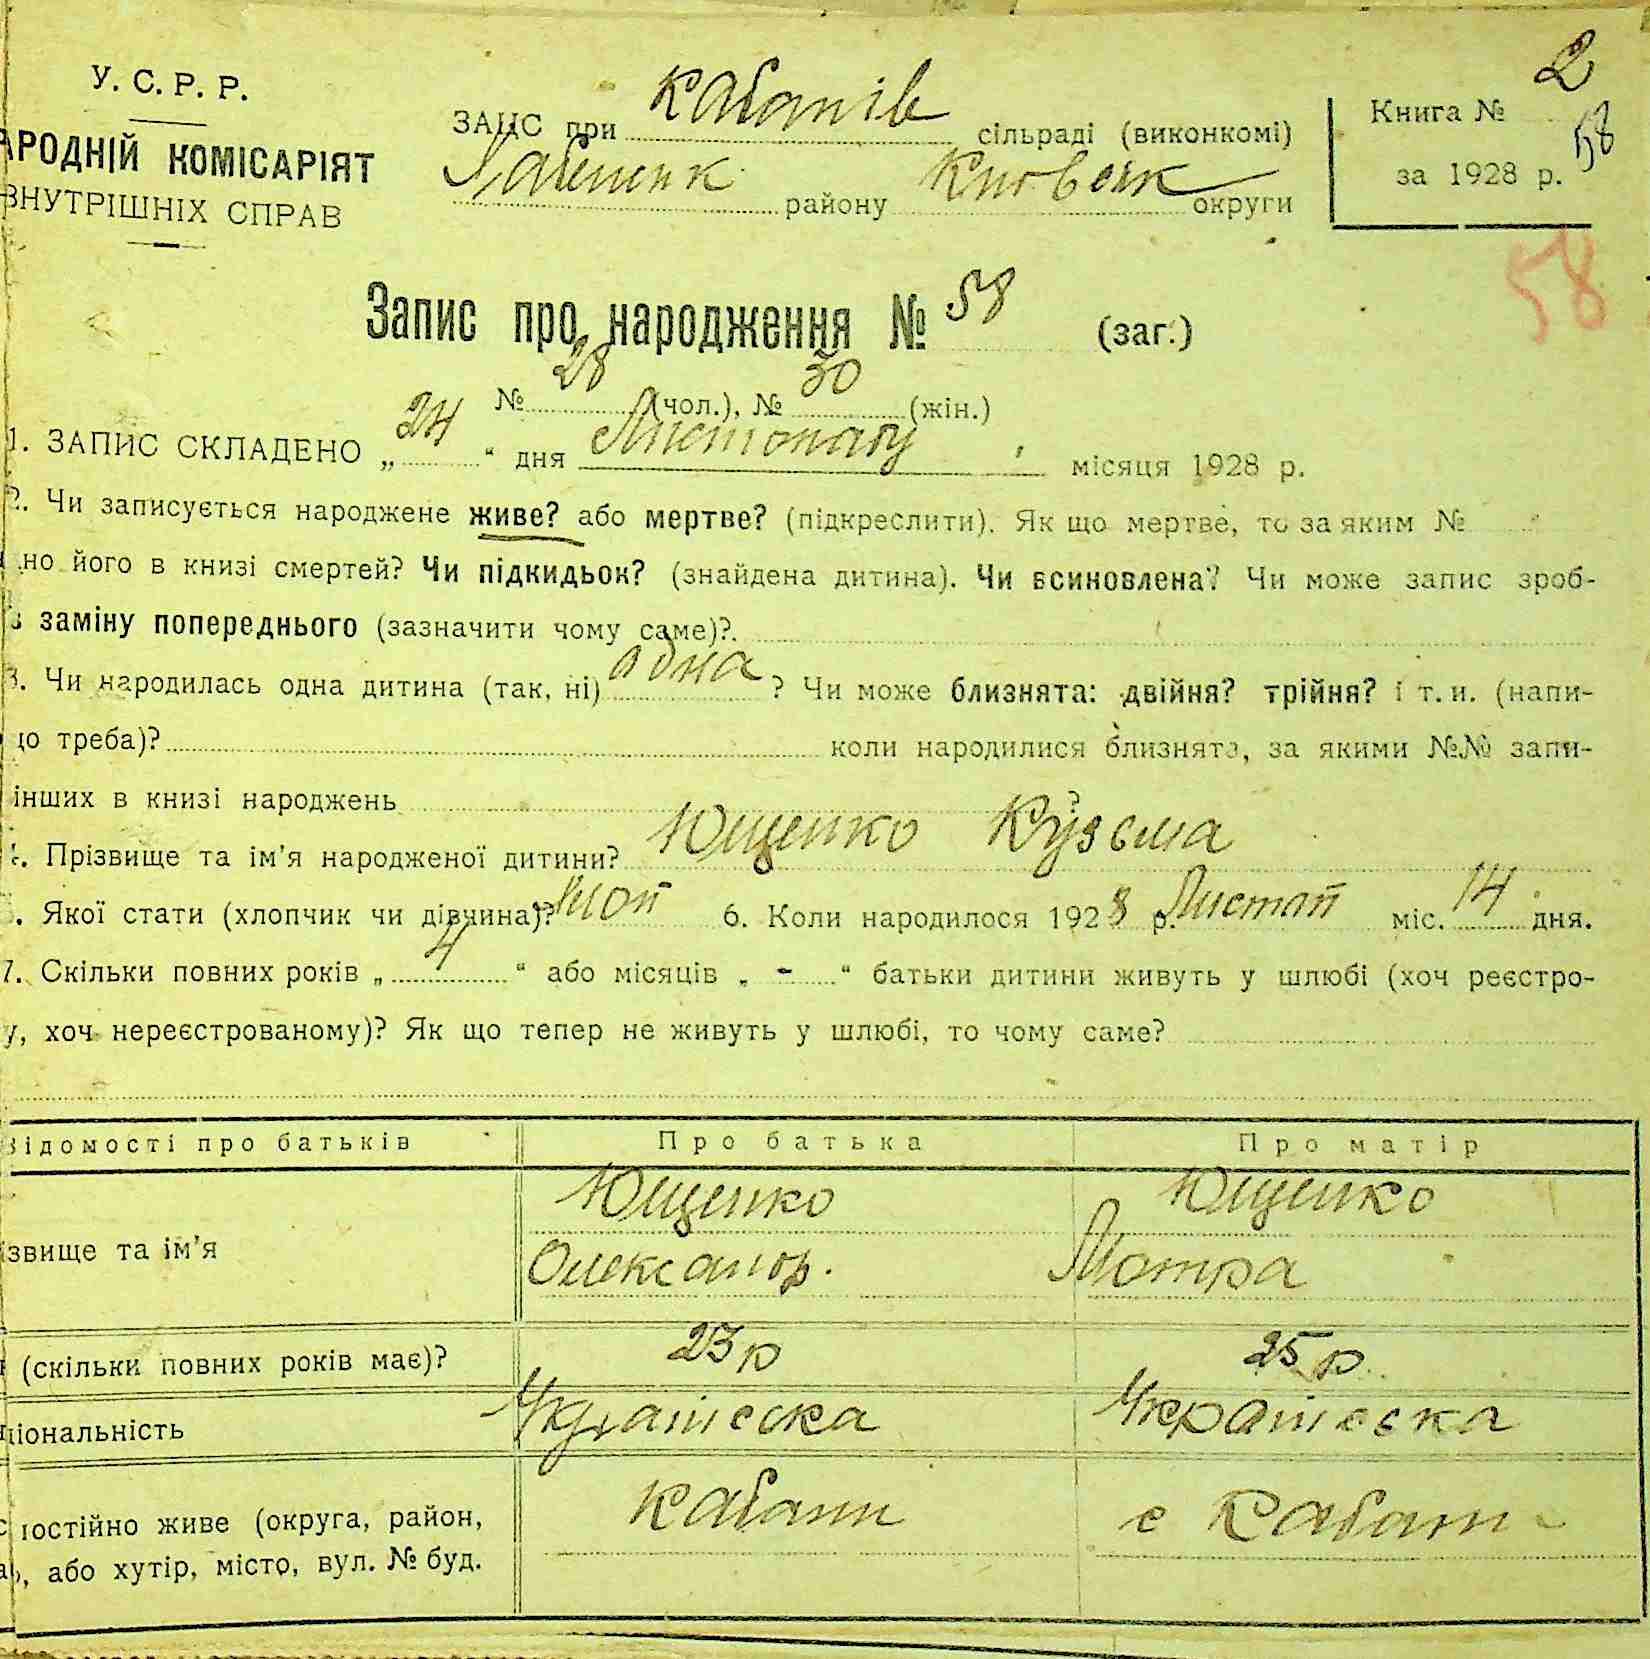 У. С. Р. Р.
АРОДНІЙ КОМІСАРІЯТ
ВНУТРІШНІХ СПРАВ
ЗАЦС при Кабанів сільраді (виконкомі)
району Київськ округи
Книга № 2
58
за 1928 р.
58
Запис про народження № 58 (заг.)
№ 28 (чол.), № 30 (жін.)
1. ЗАПИС СКЛАДЕНО „ 24 “ дня Листопаду місяця 1928 р.
2. Чи записується народжене живе? або мертве? (підкреслити). Як що мертве, то за яким №
но його в книзі смертей? Чи підкидьок? (знайдена дитина). Чи всиновлена? Чи може запис зроб-
в заміну попереднього (зазначити чому саме)?
3. Чи народилась одна дитина (так, ні) одна ? Чи може близнята: двійня? трійня? і т. и. (напи-
що треба)? коли народилися близнята, за якими №№ запи-
інших в книзі народжень ?
4. Прізвище та ім'я народженої дитини? Ющенко Кузьма
5. Якої стати (хлопчик чи дівчина)? 6. Коли народилося 1928 р. Листоп міс. 14 дня.
7. Скільки повних років „ 4 “ або місяців „ - “ батьки дитини живуть у шлюбі (хоч реєстро-
у, хоч нереєстрованому)? Як що тепер не живуть у шлюбі, то чому саме?
Відомості про батьків Про батька Про матір
Ющенко Ющенко
ізвище та ім'я Олександр. Мотра
(скільки повних років має)? 23 р 25 р.
ціональність Українська Українська
постійно живе (округа, район, Кабани с Кабани
або хутір, місто, вул. № буд.